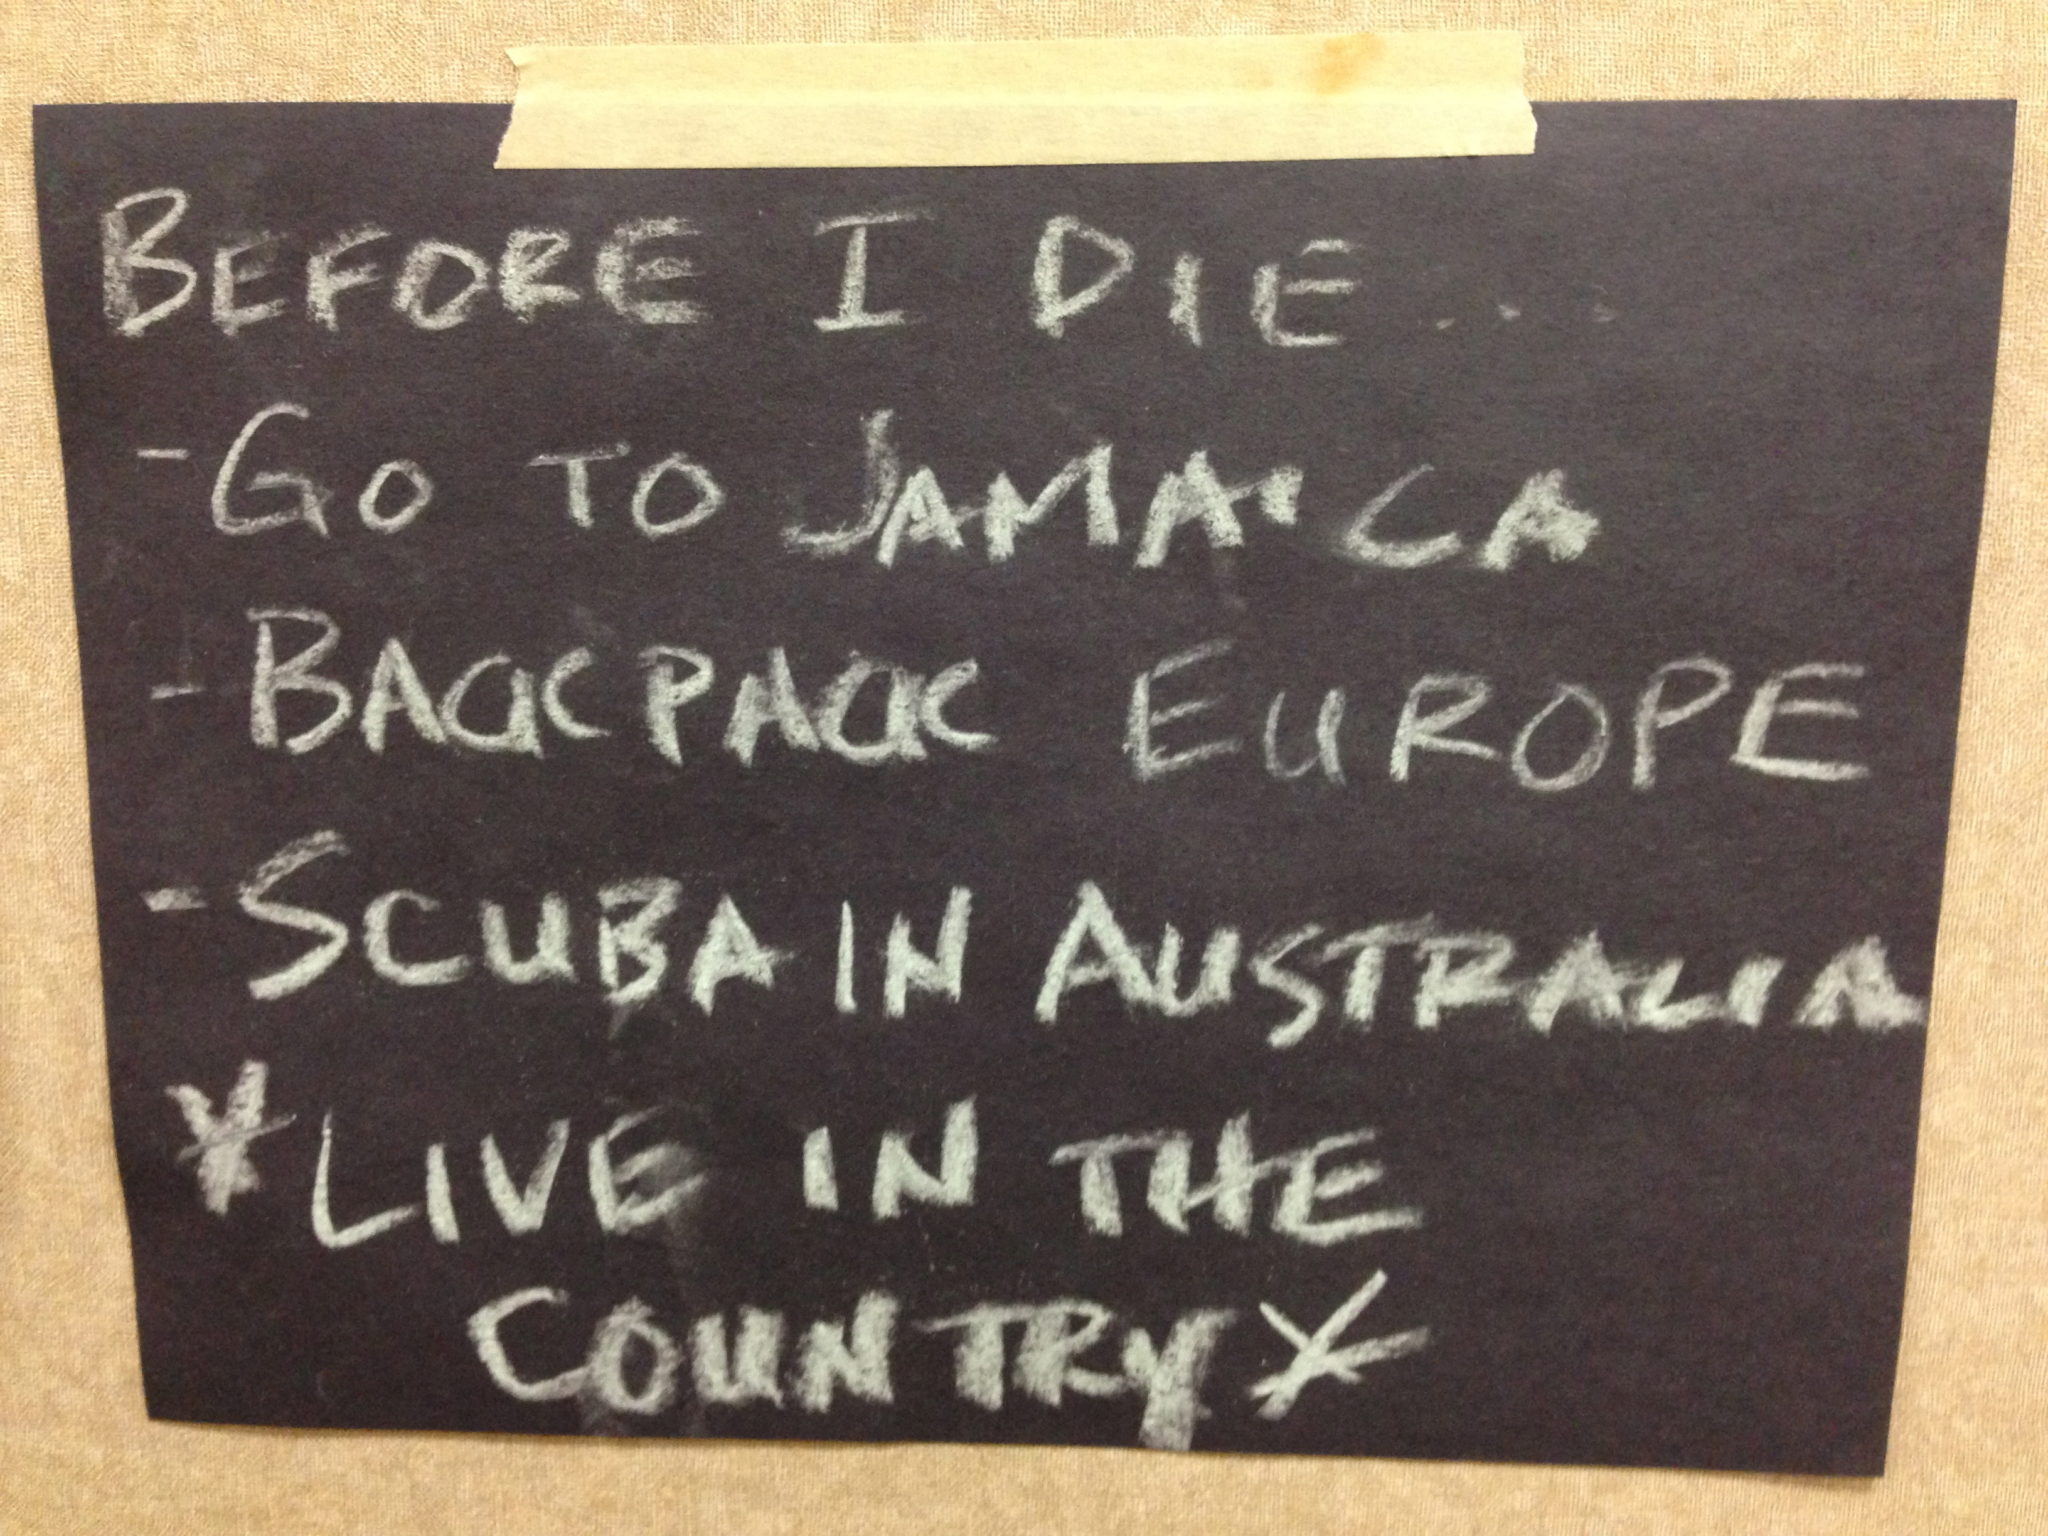 BEFORE I DIE...
- GO TO JAMAICA
- BACKPACK EUROPE
- SCUBA IN AUSTRALIA
* LIVE IN THE
COUNTRY *